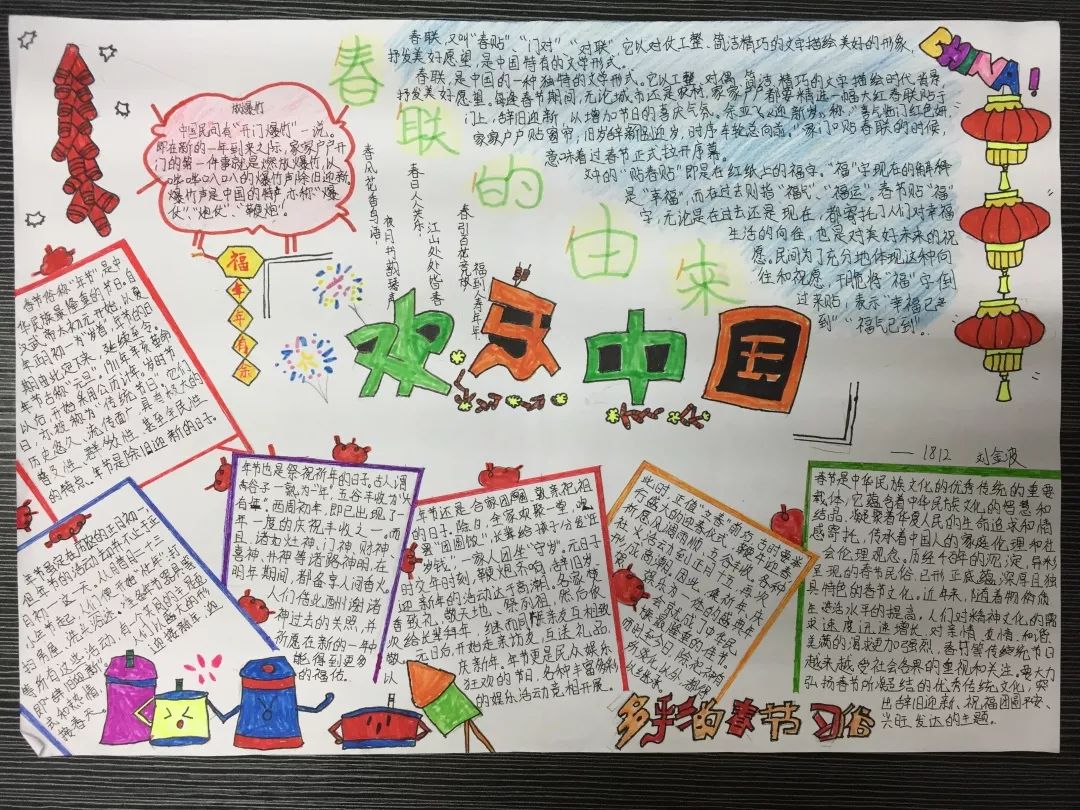 放爆竹
中国民间有“开门爆竹”一说。
即在新的一年到来之际,家家户户开
门的第一件事就是燃放爆竹,以
的爆竹声除旧迎新
爆竹声是中国的特产亦称“爆
仗”“炮仗”、“鞭炮”。
春
联
的
由
来
春联,又叫“春贴”“门对”“对联”,它以对仗工整、简洁精巧的文字描绘美好的形象、
抒发美好愿望,是中国特有的文学形式。
春联,是中国的一种独特的文学形式。它以工整、对偶、简洁、精巧的文字描绘时代背景
抒发美好愿望。每逢春节期间,无论城市还是农村,家家户户都要精选一幅大红春联贴于
门上,辞旧迎新,以增加节日的喜庆气氛。
家家户户贴窗帘,旧岁辞别迎岁,时序车轮总向前。”家门口贴春联的时候,
意味着过春节正式拉开序幕。
对中的“贴春贴”即是在红纸上的福字。“福”字现在的解释
是“幸福”,而在过去则指“福气”、“福运”。春节贴“福”
字,无论是在过去还是现在,都寄托了人们对幸福
生活的向往,也是对美好未来的祝
愿。民间为了充分地体现这种向
往和祝愿,干脆将“福”字倒
过来贴,表示“幸福已
到”“福气已到”。
CHINA!
春风花香鸟语
夜月书韵琴声
春日人人欢乐
江山处处皆春
春引百花竞放
福到人寿年年
福
年
年
有
余
欢乐中国
—1812 刘金波
春节俗称“年节”是中
华民族最隆重的节日。自
汉武帝太初元开始,以夏
年正月初一为“岁首”,年节的日
期由此定下来,延续至今。
年节古称“元旦”。1911年辛亥革命
以后,开始采用公历计年
日,亦被称为“传统节日”。它们
历史悠久、流传面广,具有极大的
普及性、群众性、甚至全民性
的特点。年节是除旧迎新的日子。
年节虽定在农历的正月初一,
但年节的活动却并不止于正
月初一这一天。从腊月二十三
小年节起,人们便开始“忙年”:打
扫房屋、洗头沐浴、准备年节器具等
等。所有这些活动,有一个共同的主题,
即“辞旧迎新”。人们以盛大的形
式和热情
接春天。
年节也是祭祝祈年的日子。古人谓
谷子一熟为一“年”,五谷丰收为“大
有年”。西周初年,即已出现了一
年一度的庆祝丰收之
且诸如灶神、门神、财神
喜神、井神等诸路神明,在
年节期间,都备享人间香火。
人们借此酬谢诸
神过去的关照,并
祈愿在新的一年中
能得到更多
的福佑。
年节还是合家团圆、敦亲祀祖
的日子。除夕,全家欢聚一堂,吃
罢“团圆饭”,长辈给孩子们分发“压
岁钱”,一家人团坐“守岁”。元日子
时交年时刻,鞭炮齐响,辞旧岁、
迎新年的活动达于高潮。各家焚
香致礼,敬天地、祭列祖,然后依次
给长辈拜年,继而同族亲友互相致
元日后,开始走亲访友,互送礼品,
庆新年。年节更是民众娱乐
狂欢的节日,各种丰富多彩
的娱乐活动竞相开展。
此时正值“立春”前后
行盛大的迎春仪式,鞭牛迎春
祈愿风调雨顺、五谷丰收。各种
社火活动到正月十五,再次
形成高潮。因此,
春节是中华民族文化的优秀传统的重要
载体,它蕴含着中华民族文化的智慧和
结晶,凝聚着华夏人民的生命追求和情
感寄托,传承着中国人的家庭伦理和社
会伦理观念。历经千年的沉淀,异彩
呈现的春节民俗,已形成底蕴深厚且独
具特色的春节文化。近年来,随着物质
生活水平的提高,人们对精神文化的需
求速度迅速增长,对亲情、友情、和谐
美满的渴求更加强烈,春节等传统节日
越来越受社会各界的重视和关注。要大力
弘扬春节所凝结的优秀传统文化,突
出辞旧迎新、祝福团圆平安、
兴旺发达的主题。
多彩的春节习俗